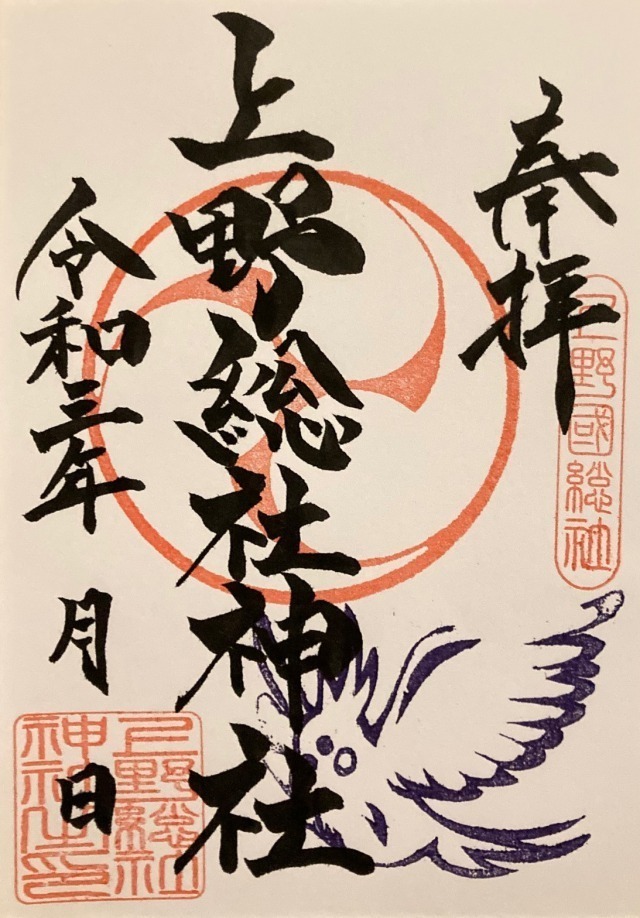 奉拝
上野國総社
上野総社神社
令和三年 月 日
上野総社
神社之印